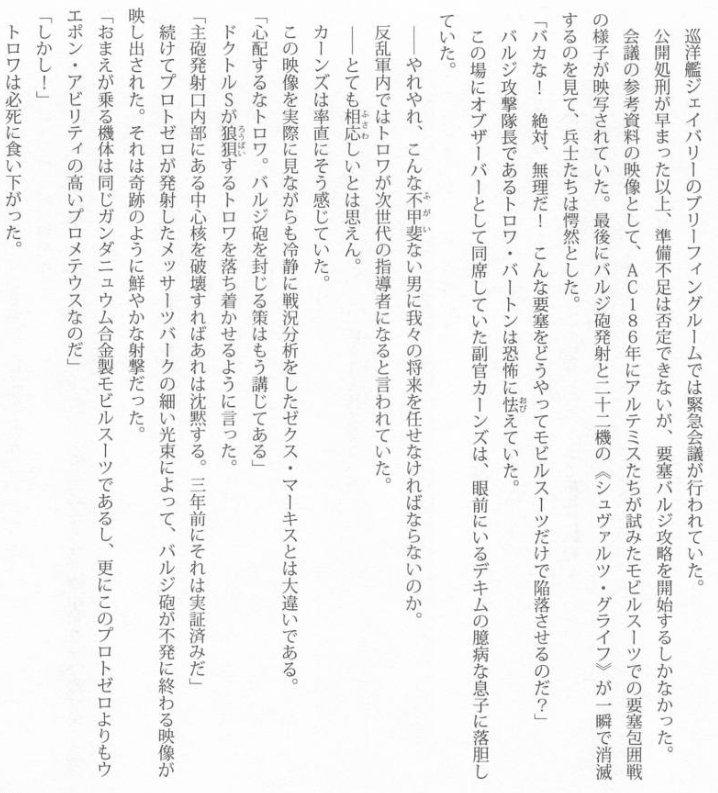 巡洋艦ジェイバリーのブリーフィングルームでは緊急会議が行われていた。
公開処刑が早まった以上、準備不足は否定できないが、要塞バルジ攻略を開始するしかなかった。
会議の参考資料の映像として、AC186年にアルテミスたちが試みたモビルスーツでの要塞包囲戦
の様子が映写されていた。最後にバルジ砲発射と二十二機の《シュヴァルツ・グライフ》が一瞬で消滅
するのを見て、兵士たちは愕然とした。
「バカな！　絶対、無理だ！　こんな要塞をどうやってモビルスーツだけで陥落させるのだ？」
バルジ攻撃隊長であるトロワ・バートンは恐怖に怯えていた。
この場にオブザーバーとして同席していた副官カーンズは、眼前にいるデキムの臆病な息子に落胆し
ていた。
――やれやれ、こんな不甲斐ない男に我々の将来を任せなければならないのか。
反乱軍内ではトロワが次世代の指導者になると言われていた。
――とても相応しいとは思えん。
カーンズは率直にそう感じていた。
この映像を実際に見ながらも冷静に戦況分析をしたゼクス・マーキスとは大違いである。
「心配するなトロワ。バルジ砲を封じる策はもう講じてある」
ドクトルSが狼狽するトロワを落ち着かせるように言った。
「主砲発射口内部にある中心核を破壊すればあれは沈黙する。三年前にそれは実証済みだ」
続けてプロトゼロが発射したメッサーツバークの細い光束によって、バルジ砲が不発に終わる映像が
映し出された。それは奇跡のように鮮やかな射撃だった。
「おまえが乗る機体は同じガンダニュウム合金製モビルスーツであるし、更にこのプロトゼロよりもウ
エポン・アビリティの高いプロメテウスなのだ」
「しかし！」
トロワは必死に食い下がった。